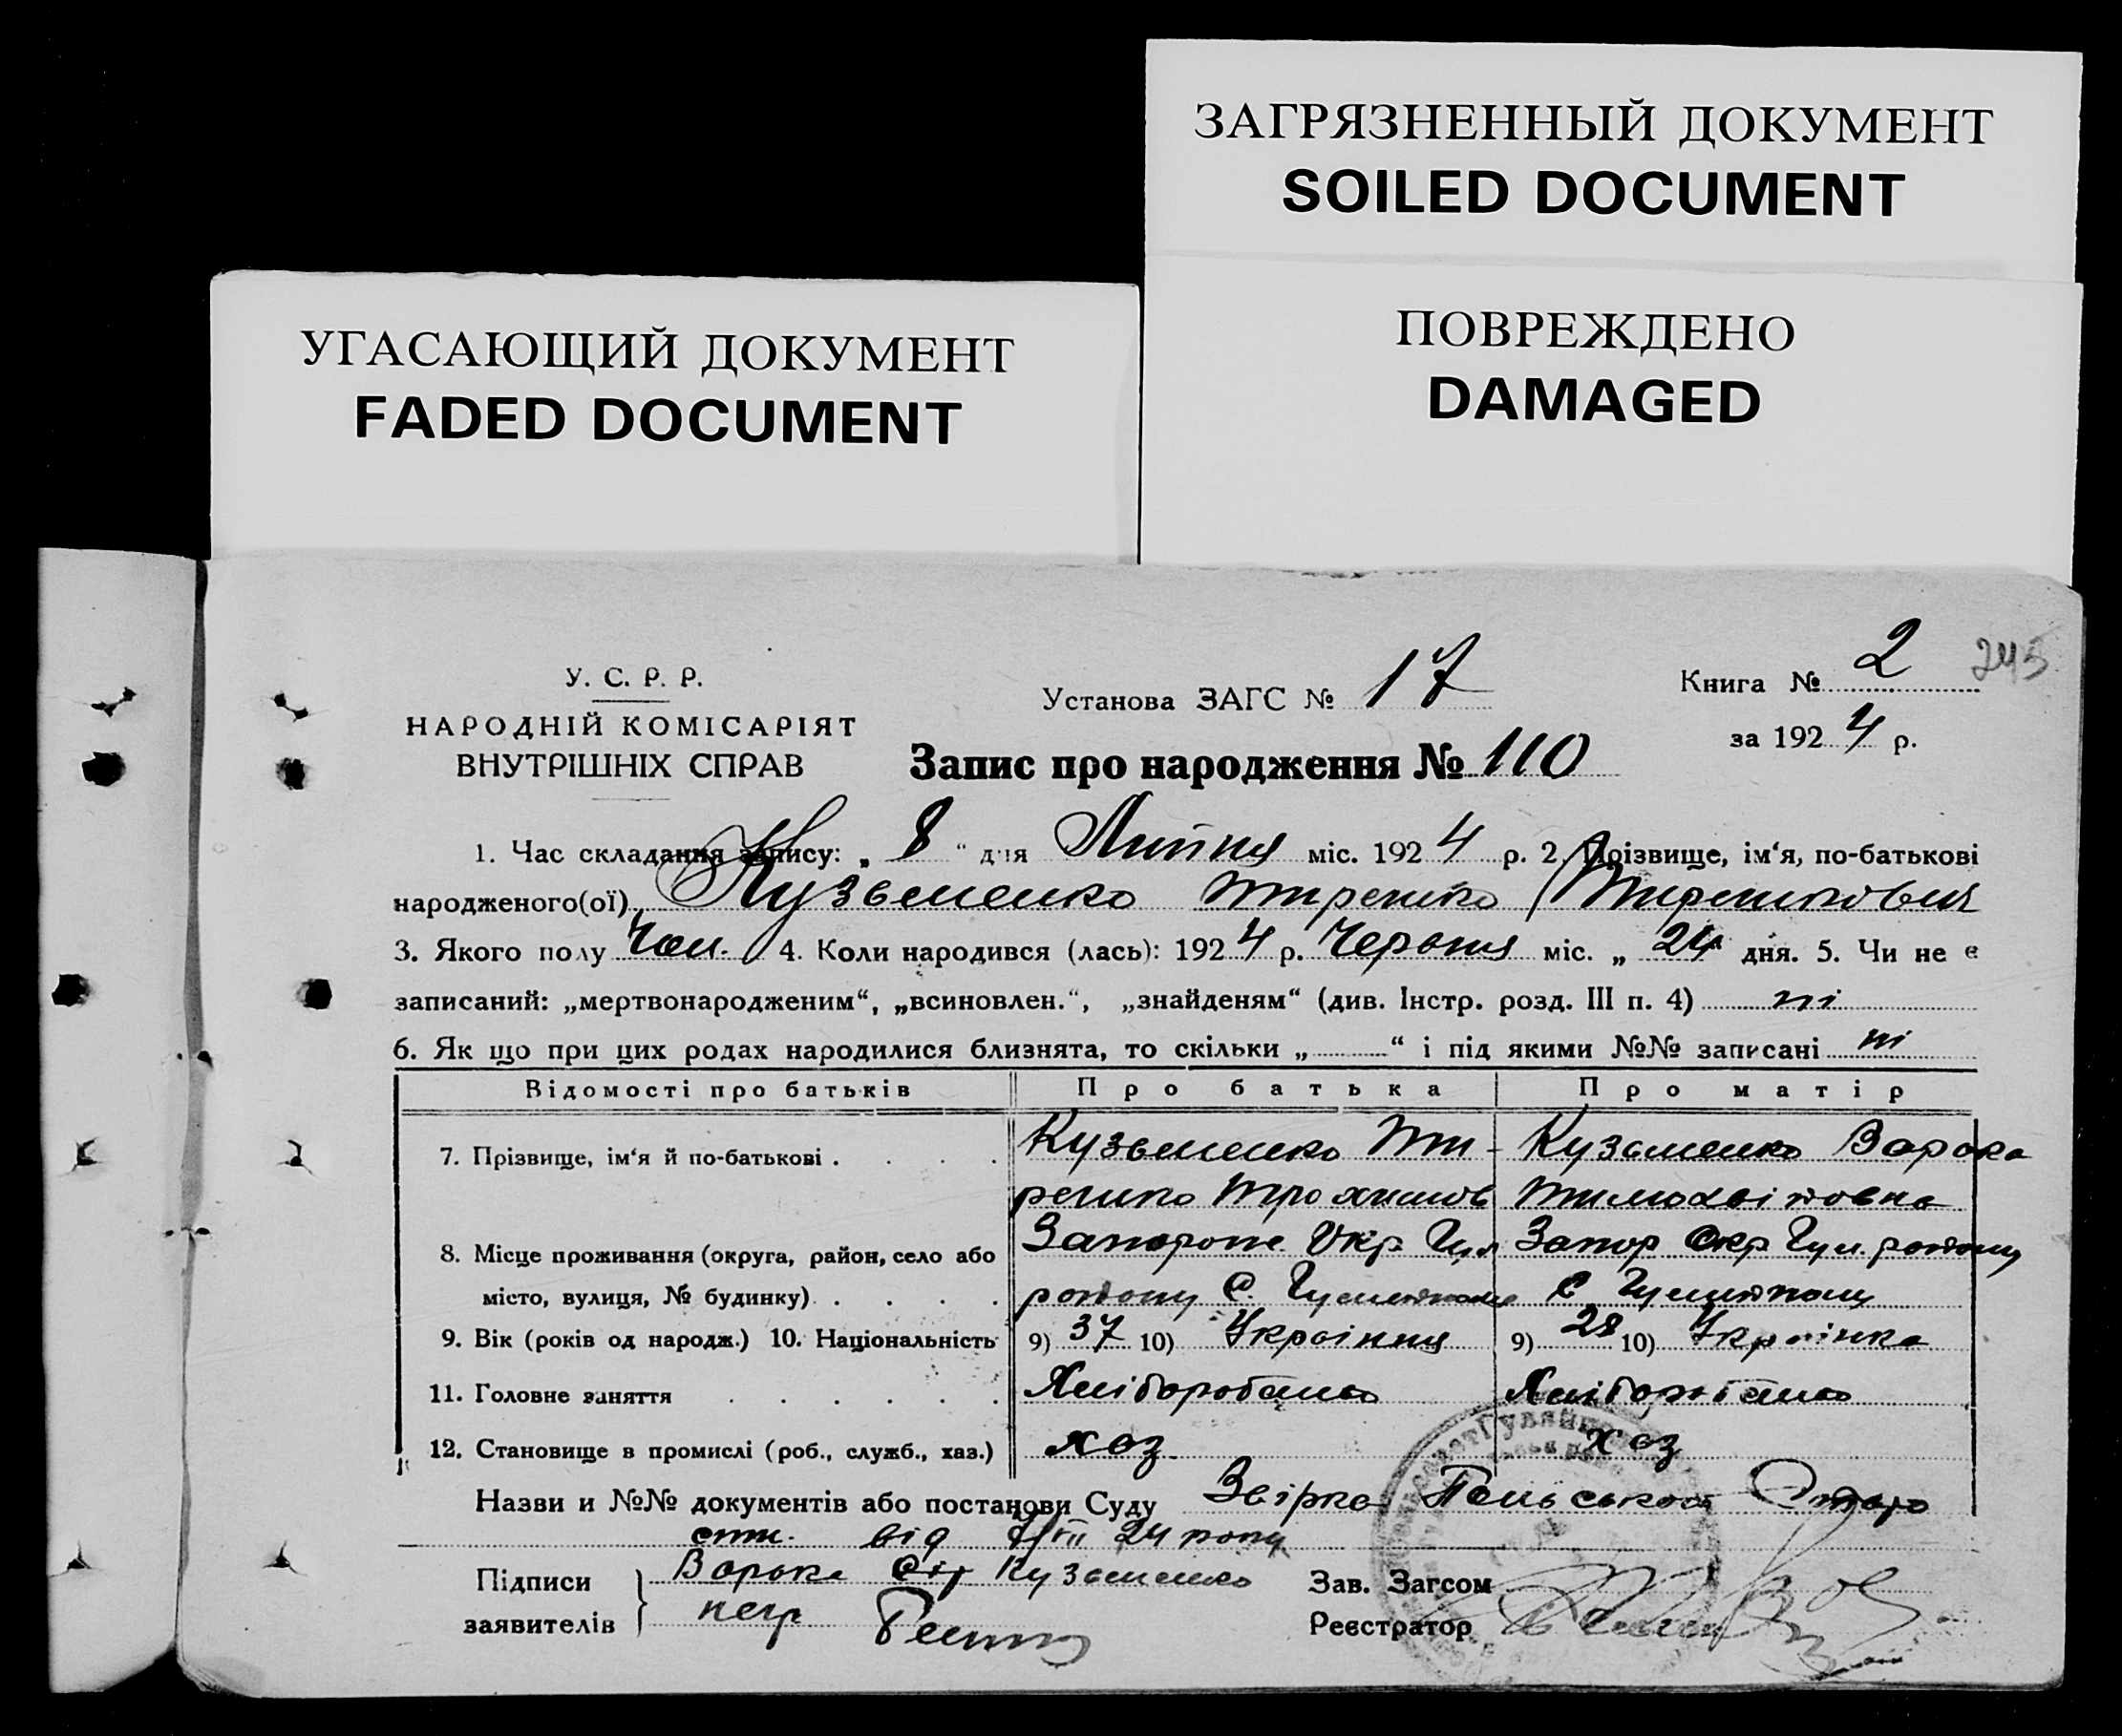 ЗАГРЯЗНЕННЫЙ ДОКУМЕНТ
SOILED DOCUMENT
УГАСАЮЩИЙ ДОКУМЕНТ
FADED DOCUMENT
ПОВРЕЖДЕНО
DAMAGED
У. С. Р. Р.
НАРОДНІЙ КОМІСАРІЯТ
ВНУТРІШНІХ СПРАВ
Установа ЗАГС № 17
Книга № 2 245
за 1924 р.
Запис про народження № 110
1. Час складання запису: „ 8 “ дня Липня міс. 1924 р. 2. Прізвище, ім‘я, по-батькові
народженого(ої) Кузьменко
3. Якого полу Чол. 4. Коли народився (лась): 1924 р. Червня міс. „ 24 дня. 5. Чи не є
записаний: „мертвонародженим“, „всиновлен.“, „знайденям“ (див. Інстр. розд. III п. 4) ні
6. Як що при цих родах народилися близнята, то скільки „ “ і під якими №№ записані ні
Відомості про батьків Про батька Про матір
7. Прізвище, ім‘я й по-батькові Кузьменко Кузьменко Варька
8. Місце проживання (округа, район, село або Запорож. Окр. Гул Запор Окр Гул. району
місто, вулиця, № будинку) району С. С
9. Вік (років од народж.) 10. Національність 9) 37 10) Українця 9) 28 10) Українка
11. Головне заняття Хліборобство Хліборобство
12. Становище в промислі (роб., служб., хаз.) хаз. хаз
Назви и №№ документів або постанови Суду
від 24 року
Підписи Варька Кузьменко Зав. Загсом
заявителів негр Реєстратор